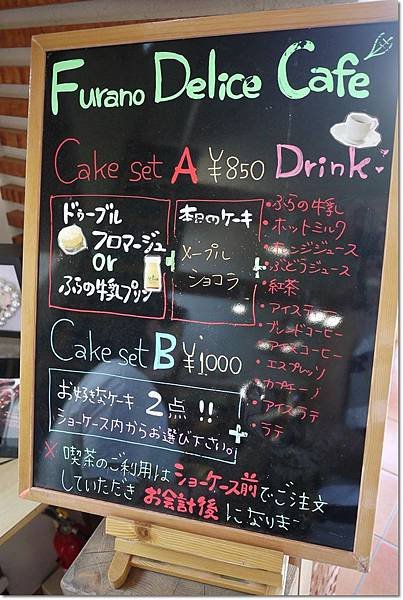 Furano Delice Cafe
Cake set A ¥850
ドゥーブル
フロマージュ
or
ふらの牛乳プリン
+
本日のケーキ
メープル
ショコラ
+
Drink
・ふらの牛乳
・ホットミルク
・オレンジジュース
・ぶどうジュース
・紅茶
・アイスティー
・ブレンドコーヒー
・アイスコーヒー
・エスプレッソ
・カプチーノ
・アイスラテ
・ラテ
Cake set B ¥1,000
お好きなケーキ 2点!!
ショーケース内からお選び下さい。
+
※喫茶のご利用はショーケース前でご注文
していただきお会計後になりま